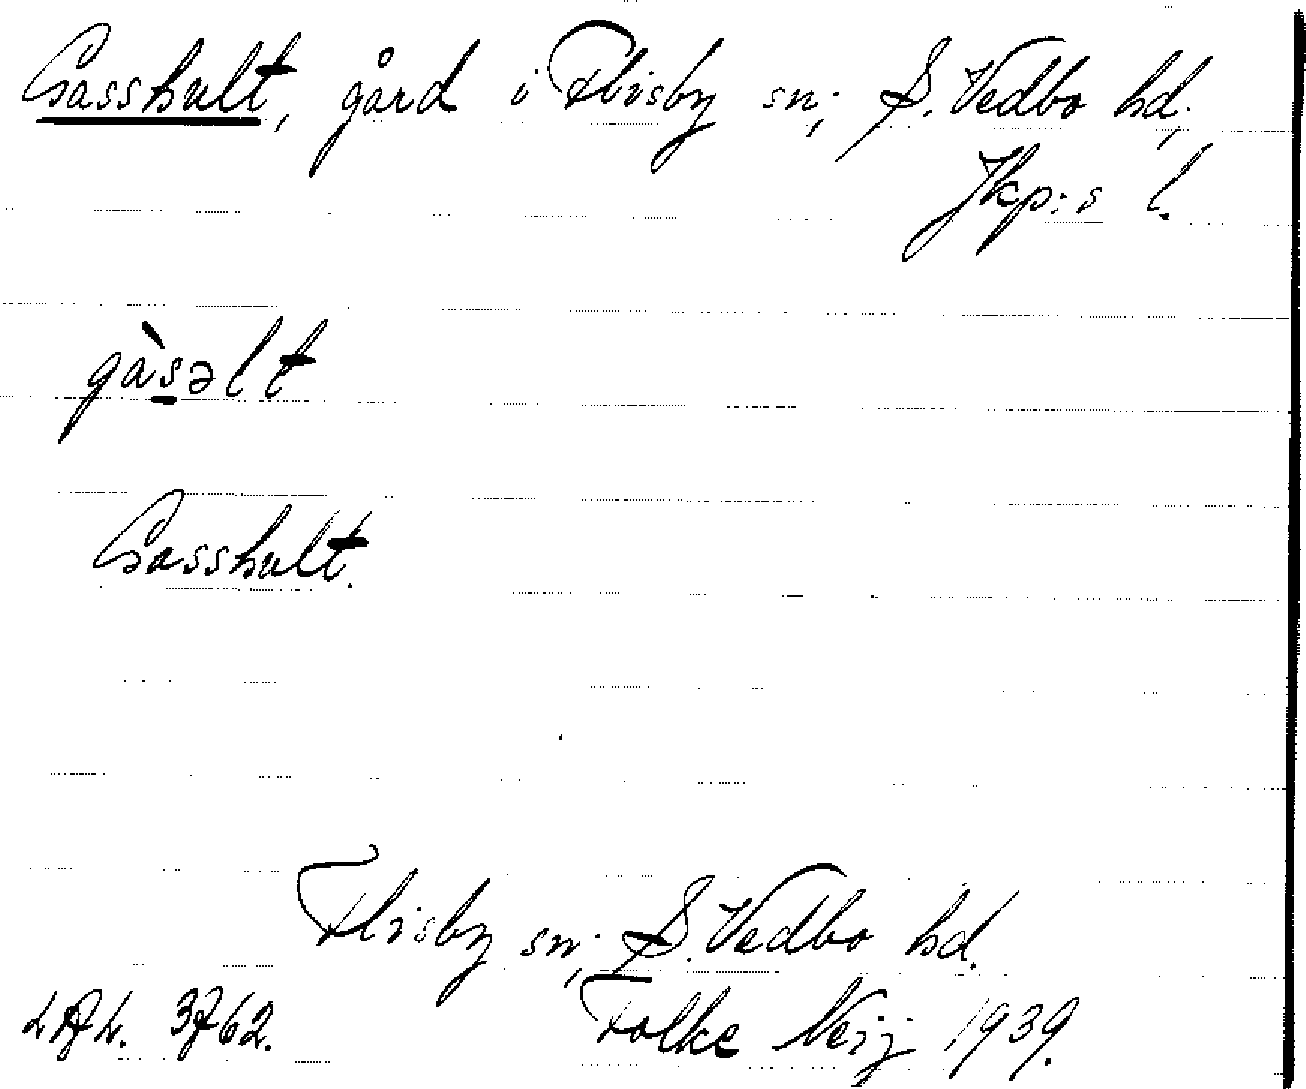 Gasshult, gård i Flisby sn; S. Vedbo hd,
Jkp:s l.
gàsəlt
Gasshult.
Flisby sn; S. Vedbo hd.
3762. Folke Neij 1939.